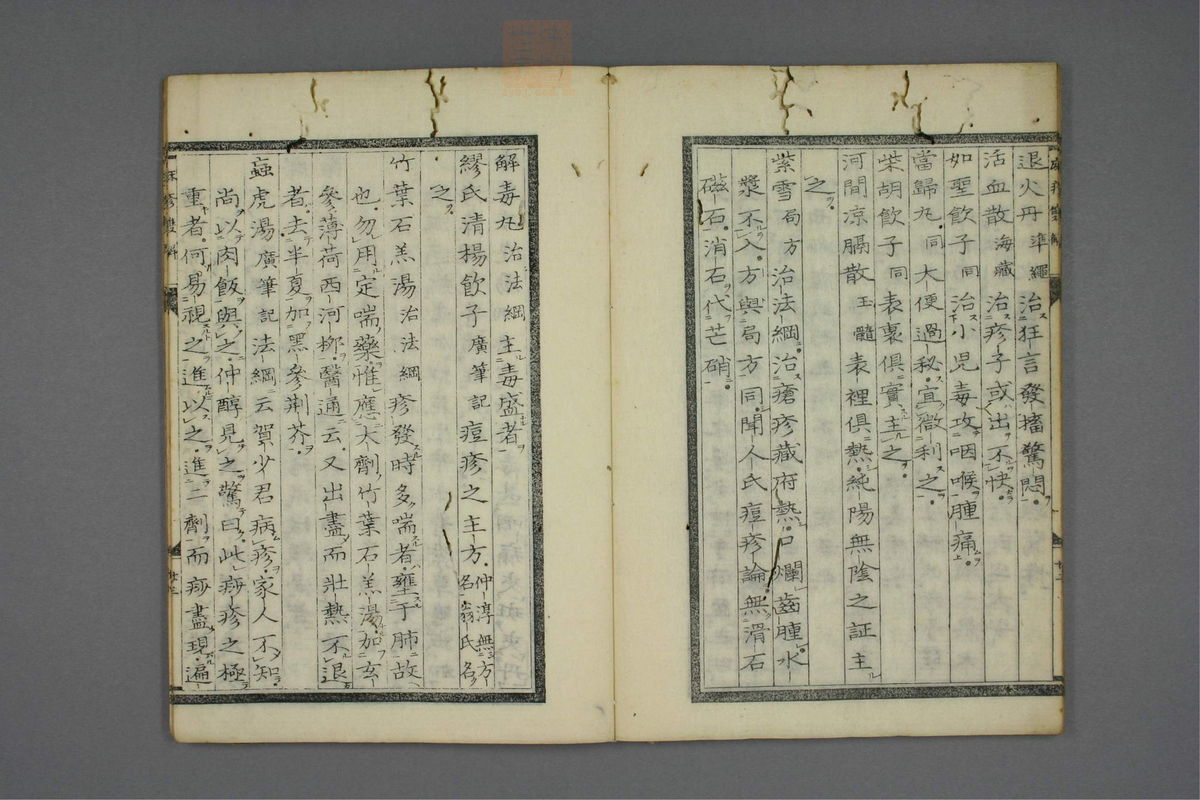 退火丹 準繩 治狂言發搐驚悶
活血散 海藏 治疹子或出不快
如聖飲子 同 治小児毒攻咽喉腫痛
當歸丸 同 大便過秘宜微利之
柴胡飲子 同 表裏俱實主之
河間凉膈散 玉髓 表裡俱熱純陽無陰之証主
之
紫雪 局方 治法綱 治瘡疹藏府熱口爛齒腫水
漿不入方與局方同聞人氏痘疹論無滑石
磁石消石代芒硝
解毒丸 治法綱 主毒盛者
繆氏清楊飲子 廣筆記 痘疹之主方 仲淳無方名翁氏名
之
竹葉石羔湯 治法綱 疹發時多喘者壅于肺故
也勿用定喘藥惟應大劑竹葉石羔湯加玄
參薄荷西河柳醫通云又出盡而壯熱不退
者去半夏加黑參荊芥
蝱虎湯 廣筆記 法綱云賀少君病疹家人不知
尚以肉飯與之仲醇見之驚曰此痧疹之極
重者何易視之進以之進二劑而痧盡現遍